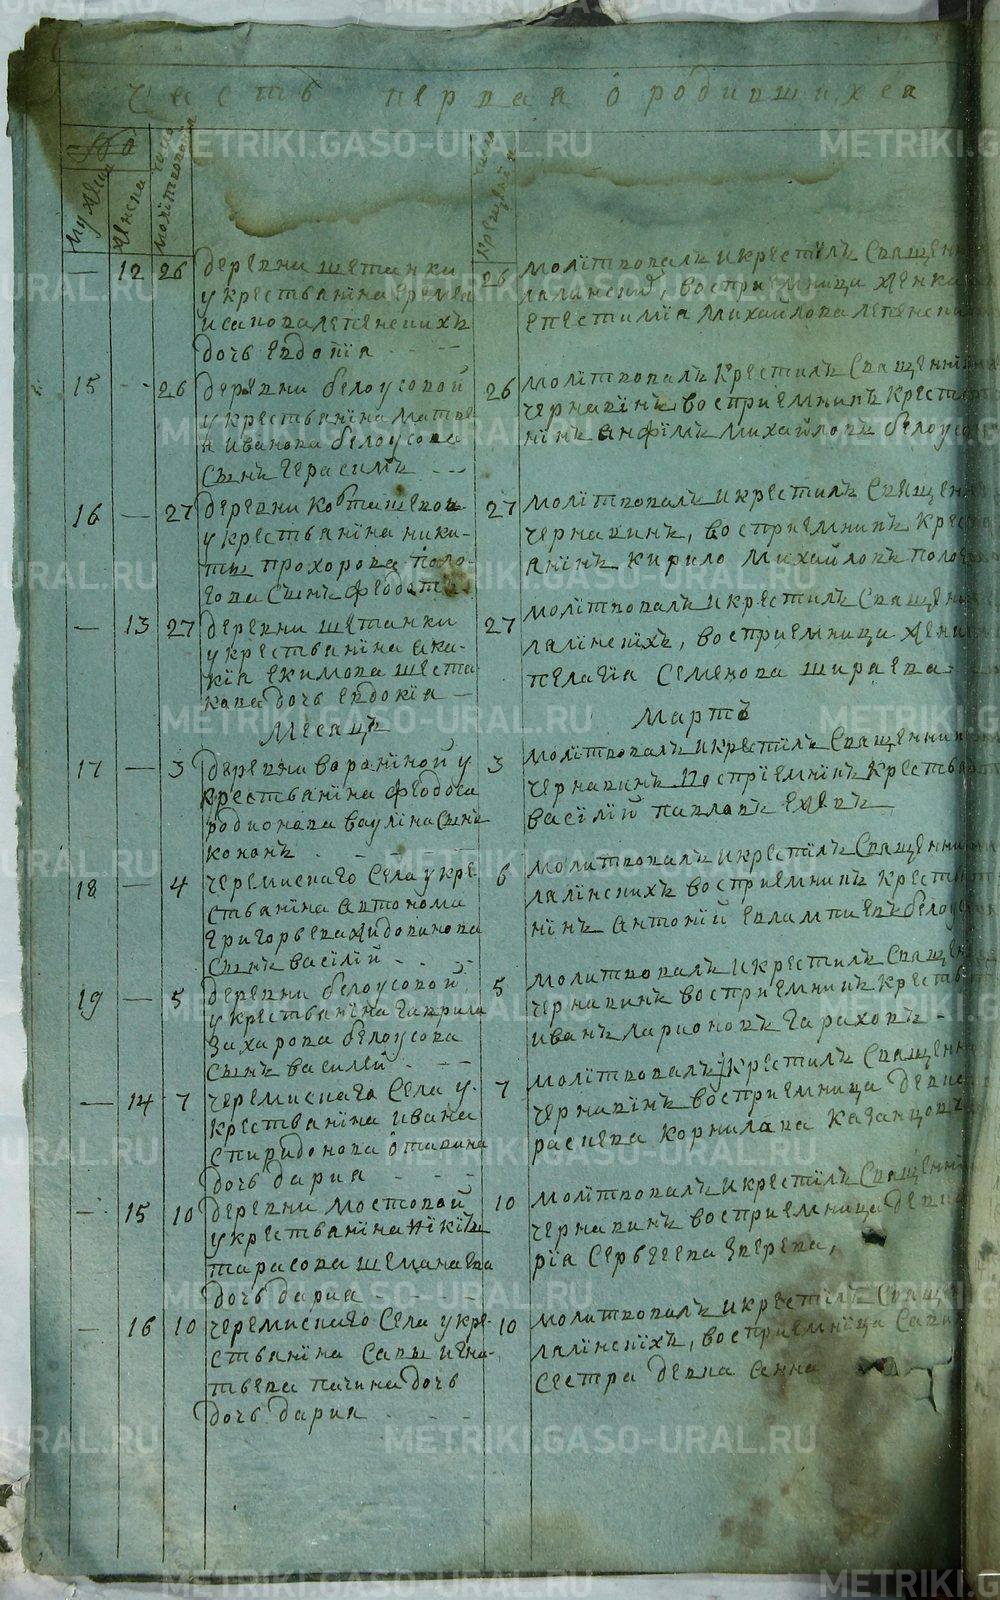 Часть первая о родившихся
мужеска
женска
число молитвования
число крещения
— 12 26 деревни шетанки
у крестьянина еремея
дочь евдокiя
26 молiтвовалъ и крестилъ Священ
лалинскiй, восприемница женка
епестимiа Михаилова
15 -- 26 деревни белоусовой
у крестьянина Матве
я Иванова белоусова
сынъ герасимъ
26 молiтвовалъ крестилъ Священни
чернавiнъ восприемникъ крестья
нiнъ анфiмъ Михайловъ белоусо
16 — 27 деревни Колташевой
у крестьянина ники-
ты прохорова поло-
гова сынъ феодотъ
27 молiтвовалъ и крестилъ Священ
чернавинъ, восприемникъ крес
янiнъ кирило Михайловъ полог
— 13 27 деревни шетанки
у крестьянiна ака-
кiя екимова шеста-
кова дочь евдокiя —
27 молiтвовалъ и крестилъ Священ
лалiнскiхъ, восприемница жен
пелагiа Семенова ширяева
Месяцъ Мартъ
17 — 3 деревни воронiной у
крестьянiна феодоса
родионова ваулiна сынъ
кононъ
3 молiтвовалъ и крестiлъ Священник
чернавинъ восприемнiкъ крестья
васiлiй павловъ ежевъ
18 — 4 черемискаго села у кре
стьянiна автонома
григорьева жидовинова
сынъ васiлiй
6 молитвовалъ и крестiлъ Священни
лалiнскихъ восприемникъ крест
нiнъ антонiй евлампiевъ белоу
19 — 5 деревни белоусовой
у крестьянiна гаврила
захарова белоусова
сынъ василей
5 молитвовалъ и крестилъ Священ
чернавинъ восприемникъ крестья
иванъ ларионовъ гараховъ
— 14 7 черемискаго села у
крестьянiна ивана
спиридонова отавина
дочь дария
7 молiтвовалъ и крестилъ Священн
чернавiнъ восприемница девка
расиева корнилова казанцовъ
— 15 10 деревни мостовой
у крестьянiна никиты
тарасова шеманаева
дочь дария
10 молiтвовалъ и крестiлъ Священнi
чернавинъ восприемница деви
рiя сергеева зверева,
— 16 10 черемискаго села у кре-
стьянiна савы игна-
тьева пачина дочь
дочь дария
10 молитвовалъ и крестилъ Свяще
лалiнскiхъ, восприемнiца сави
сестра девка анна
METRIKI.GASO-URAL.RU